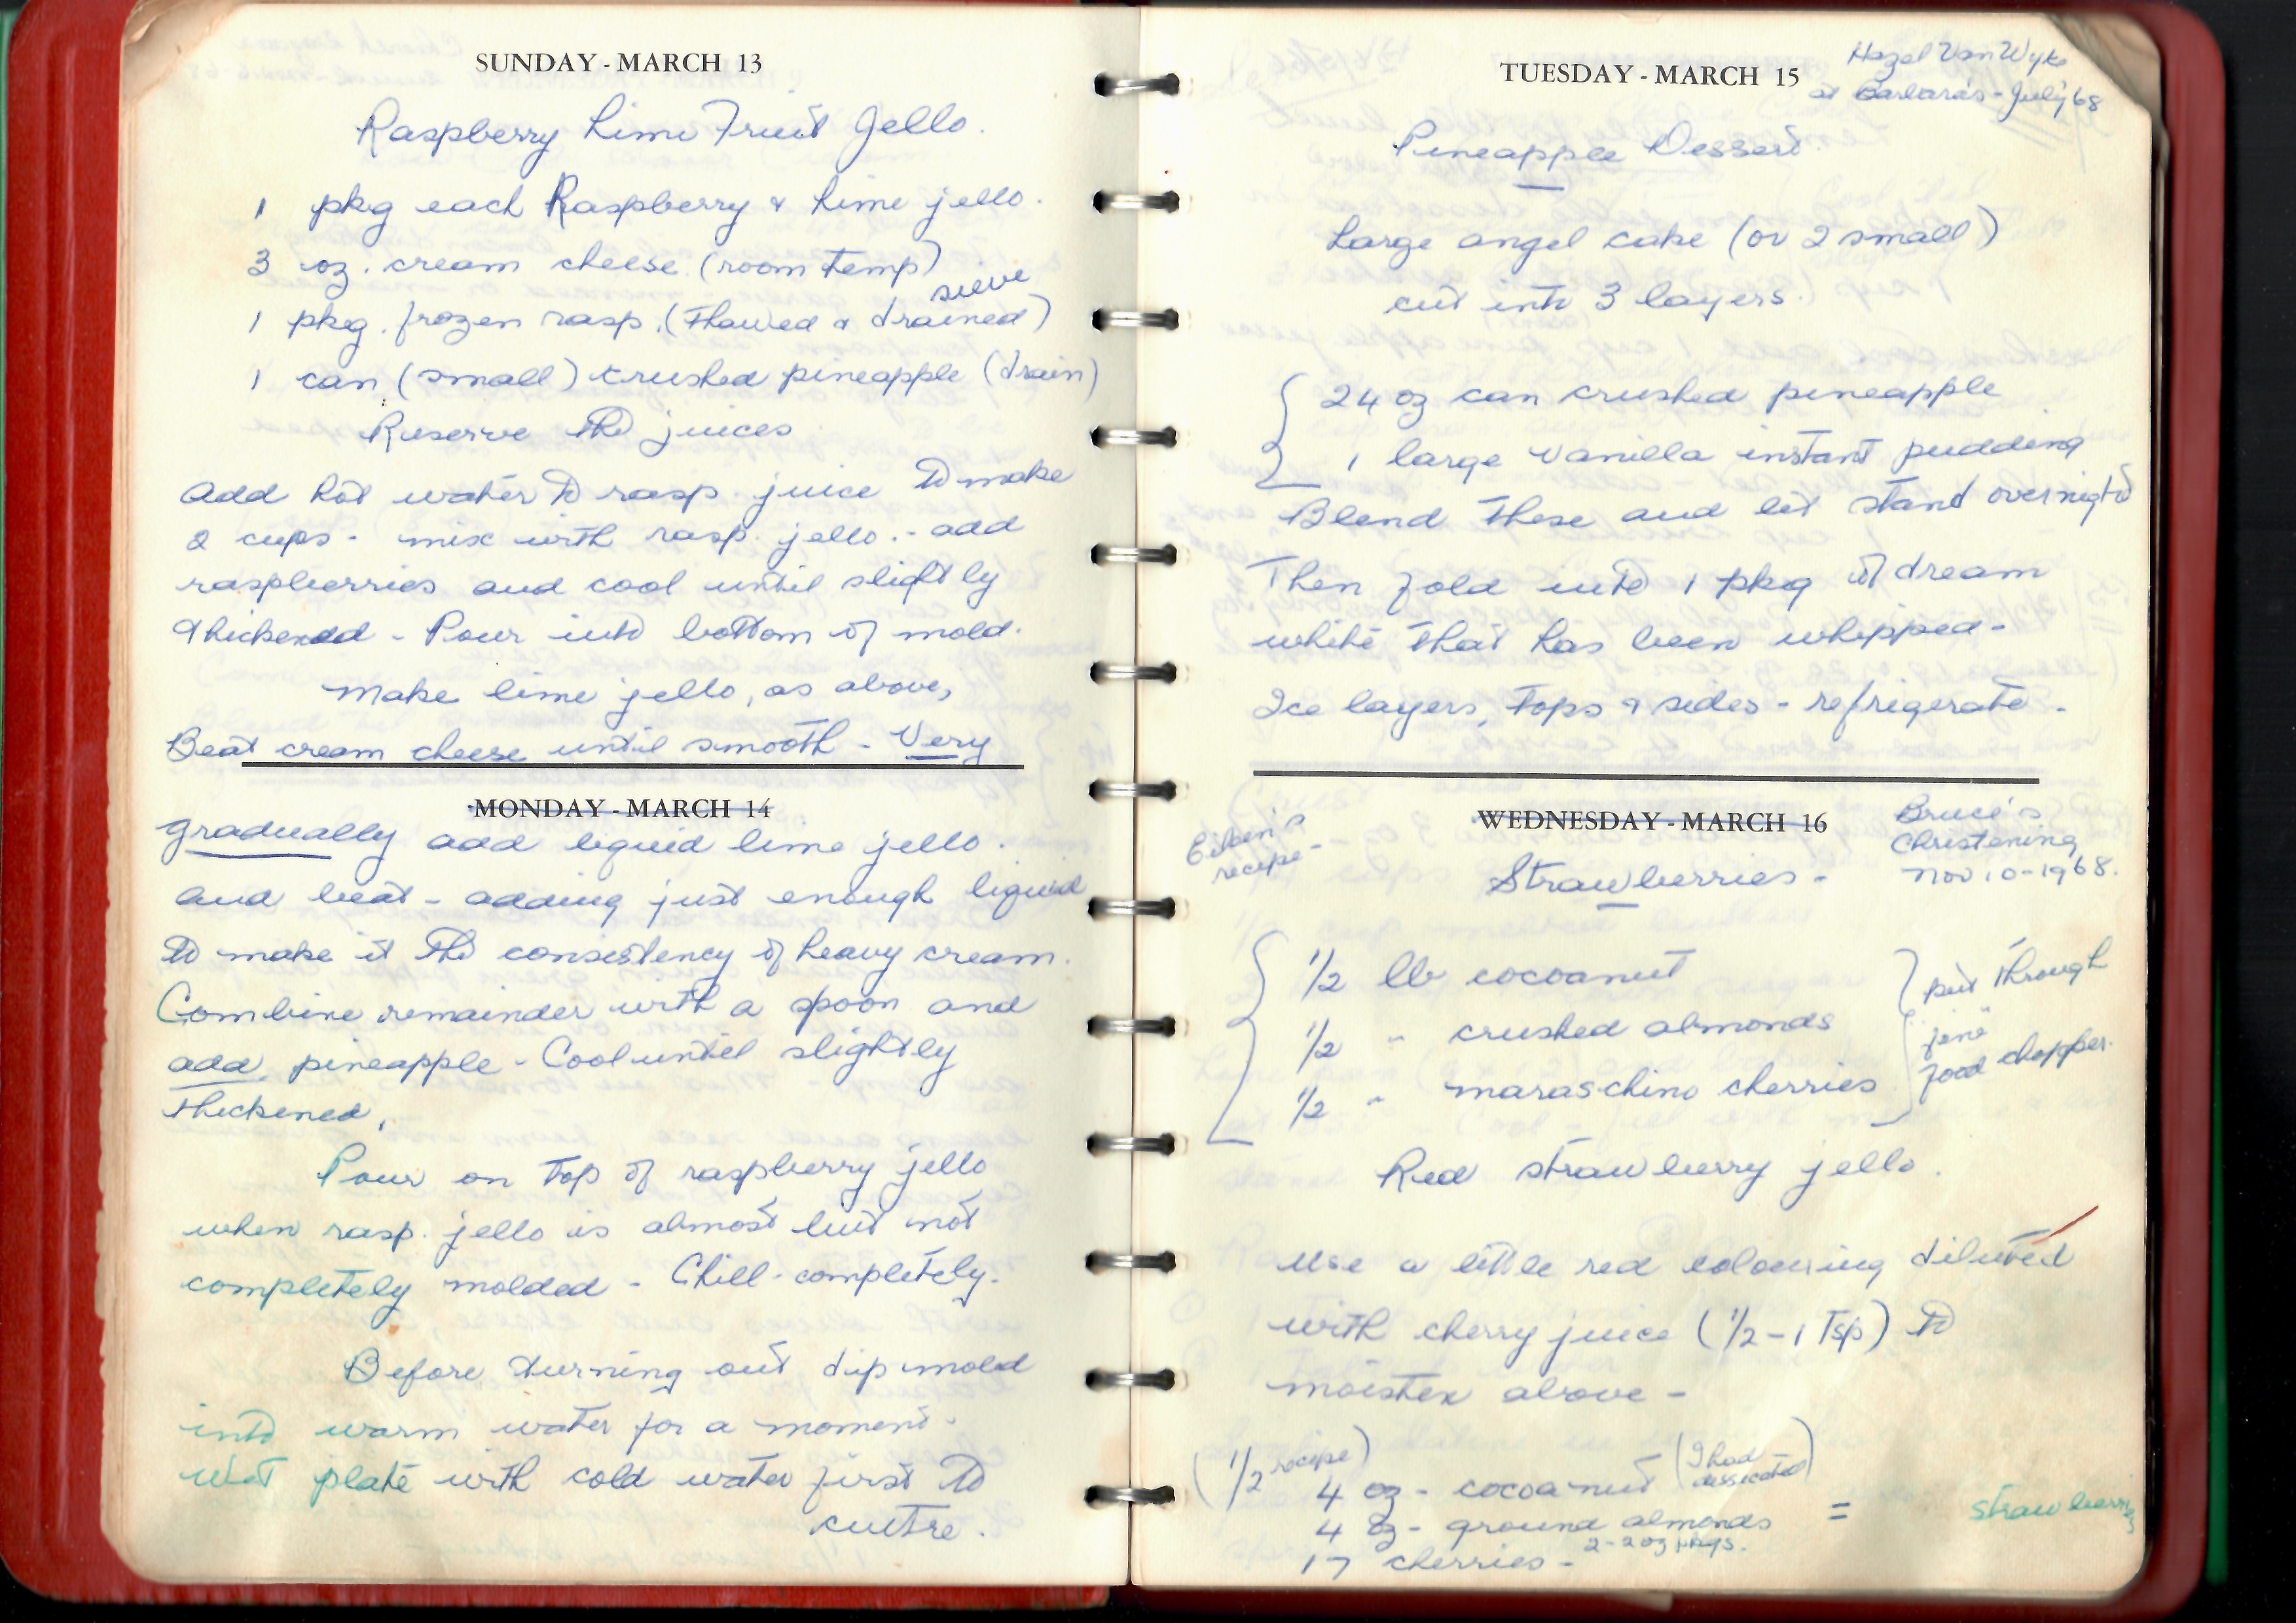 SUNDAY - MARCH 13
Raspberry Lime Fruit Jello.
1 pkg each Raspberry & Lime jello.
3 oz. cream cheese (room temp)
sieve
1 pkg. frozen rasp. (thawed & drained)
1 can (small) crushed pineapple (drain)
Reserve the juices
Add hot water to rasp. juice to make
2 cups - mix with rasp. jello. - add
raspberries and cool until slightly
thickened - Pour into bottom of mold.
Make lime jello, as above,
Beat cream cheese until smooth - Very
MONDAY - MARCH 14
gradually add liquid lime jello.
and beat - adding just enough liquid
to make it the consistency of heavy cream.
Combine remainder with a spoon and
add pineapple - Cool until slightly
thickened.
Pour on top of raspberry jello
when rasp. jello is almost but not
completely molded - Chill - completely.
Before turning out dip mold
into warm water for a moment -
wet plate with cold water first to
centre.
TUESDAY - MARCH 15
Hazel Van Wyke
at Barbara's - July 68
Pineapple Dessert.
Large angel cake (or 2 small)
cut into 3 layers.
24 oz can crushed pineapple
1 large vanilla instant pudding
Blend these and let stand overnight
Then fold into 1 pkg of dream
white that has been whipped -
Ice layers, tops & sides - refrigerate -
WEDNESDAY - MARCH 16
Eileen's
recipe -
Bruce's
Christening
Nov 10 - 1968.
Strawberries -
1/2 lb cocoanut
1/2 " crushed almonds
1/2 " maraschino cherries
put through
"fine"
food chopper.
Red strawberry jello.
Use a little red colouring diluted
with cherry juice (1/2 - 1 Tsp) to
moisten above -
(1/2 recipe)
4 oz - cocoanut (I had
dessicated)
4 oz - ground almonds
2 - 2 oz pkgs.
17 cherries -
= strawberries